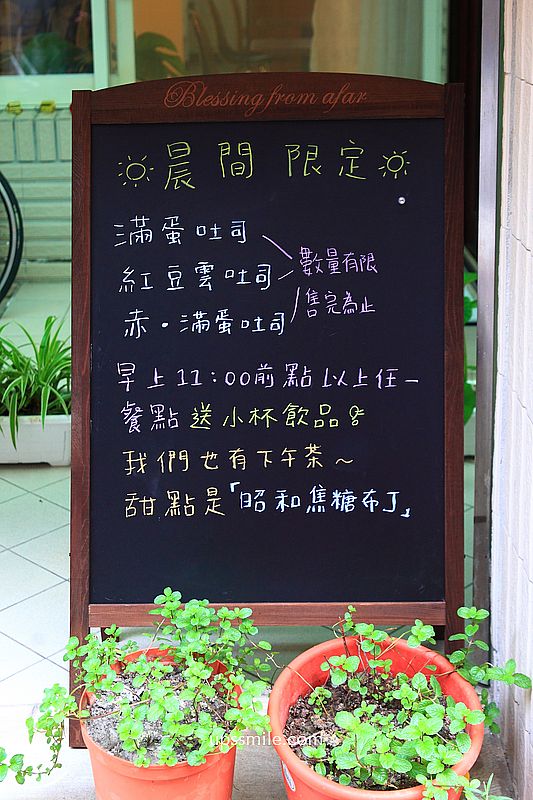 Blessing from afar
晨間限定
滿蛋吐司
紅豆雲吐司
赤·滿蛋吐司
數量有限
售完為止
早上11:00前點以上任一
餐點送小杯飲品
我們也有下午茶~
甜點是「昭和焦糖布丁」
upssmile.com